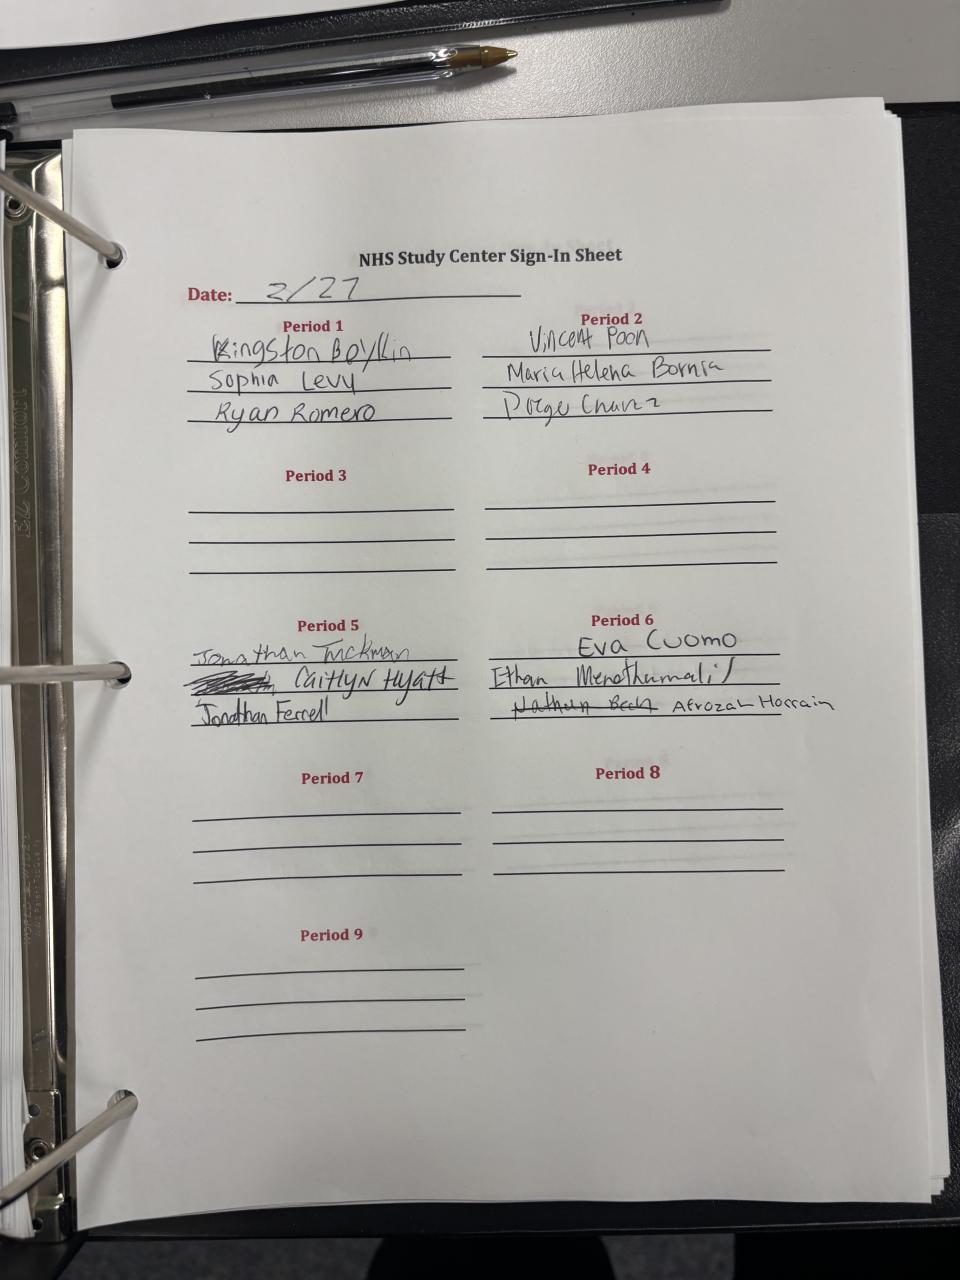 NHS Study Center Sign-In Sheet
Date: 2/27
Period 1
Kingston Boykin
Sophia Levy
Ryan Romero
Period 2
Vincent Poon
Maria Helena Bornia
Period 3
Period 4
Period 5
Jonathan Tuckman
Caitlyn Hyatt
Jonathan Ferrell
Period 6
Eva Cuomo
Ethan Menothumalil
Afrozah Hossain
Period 7
Period 8
Period 9